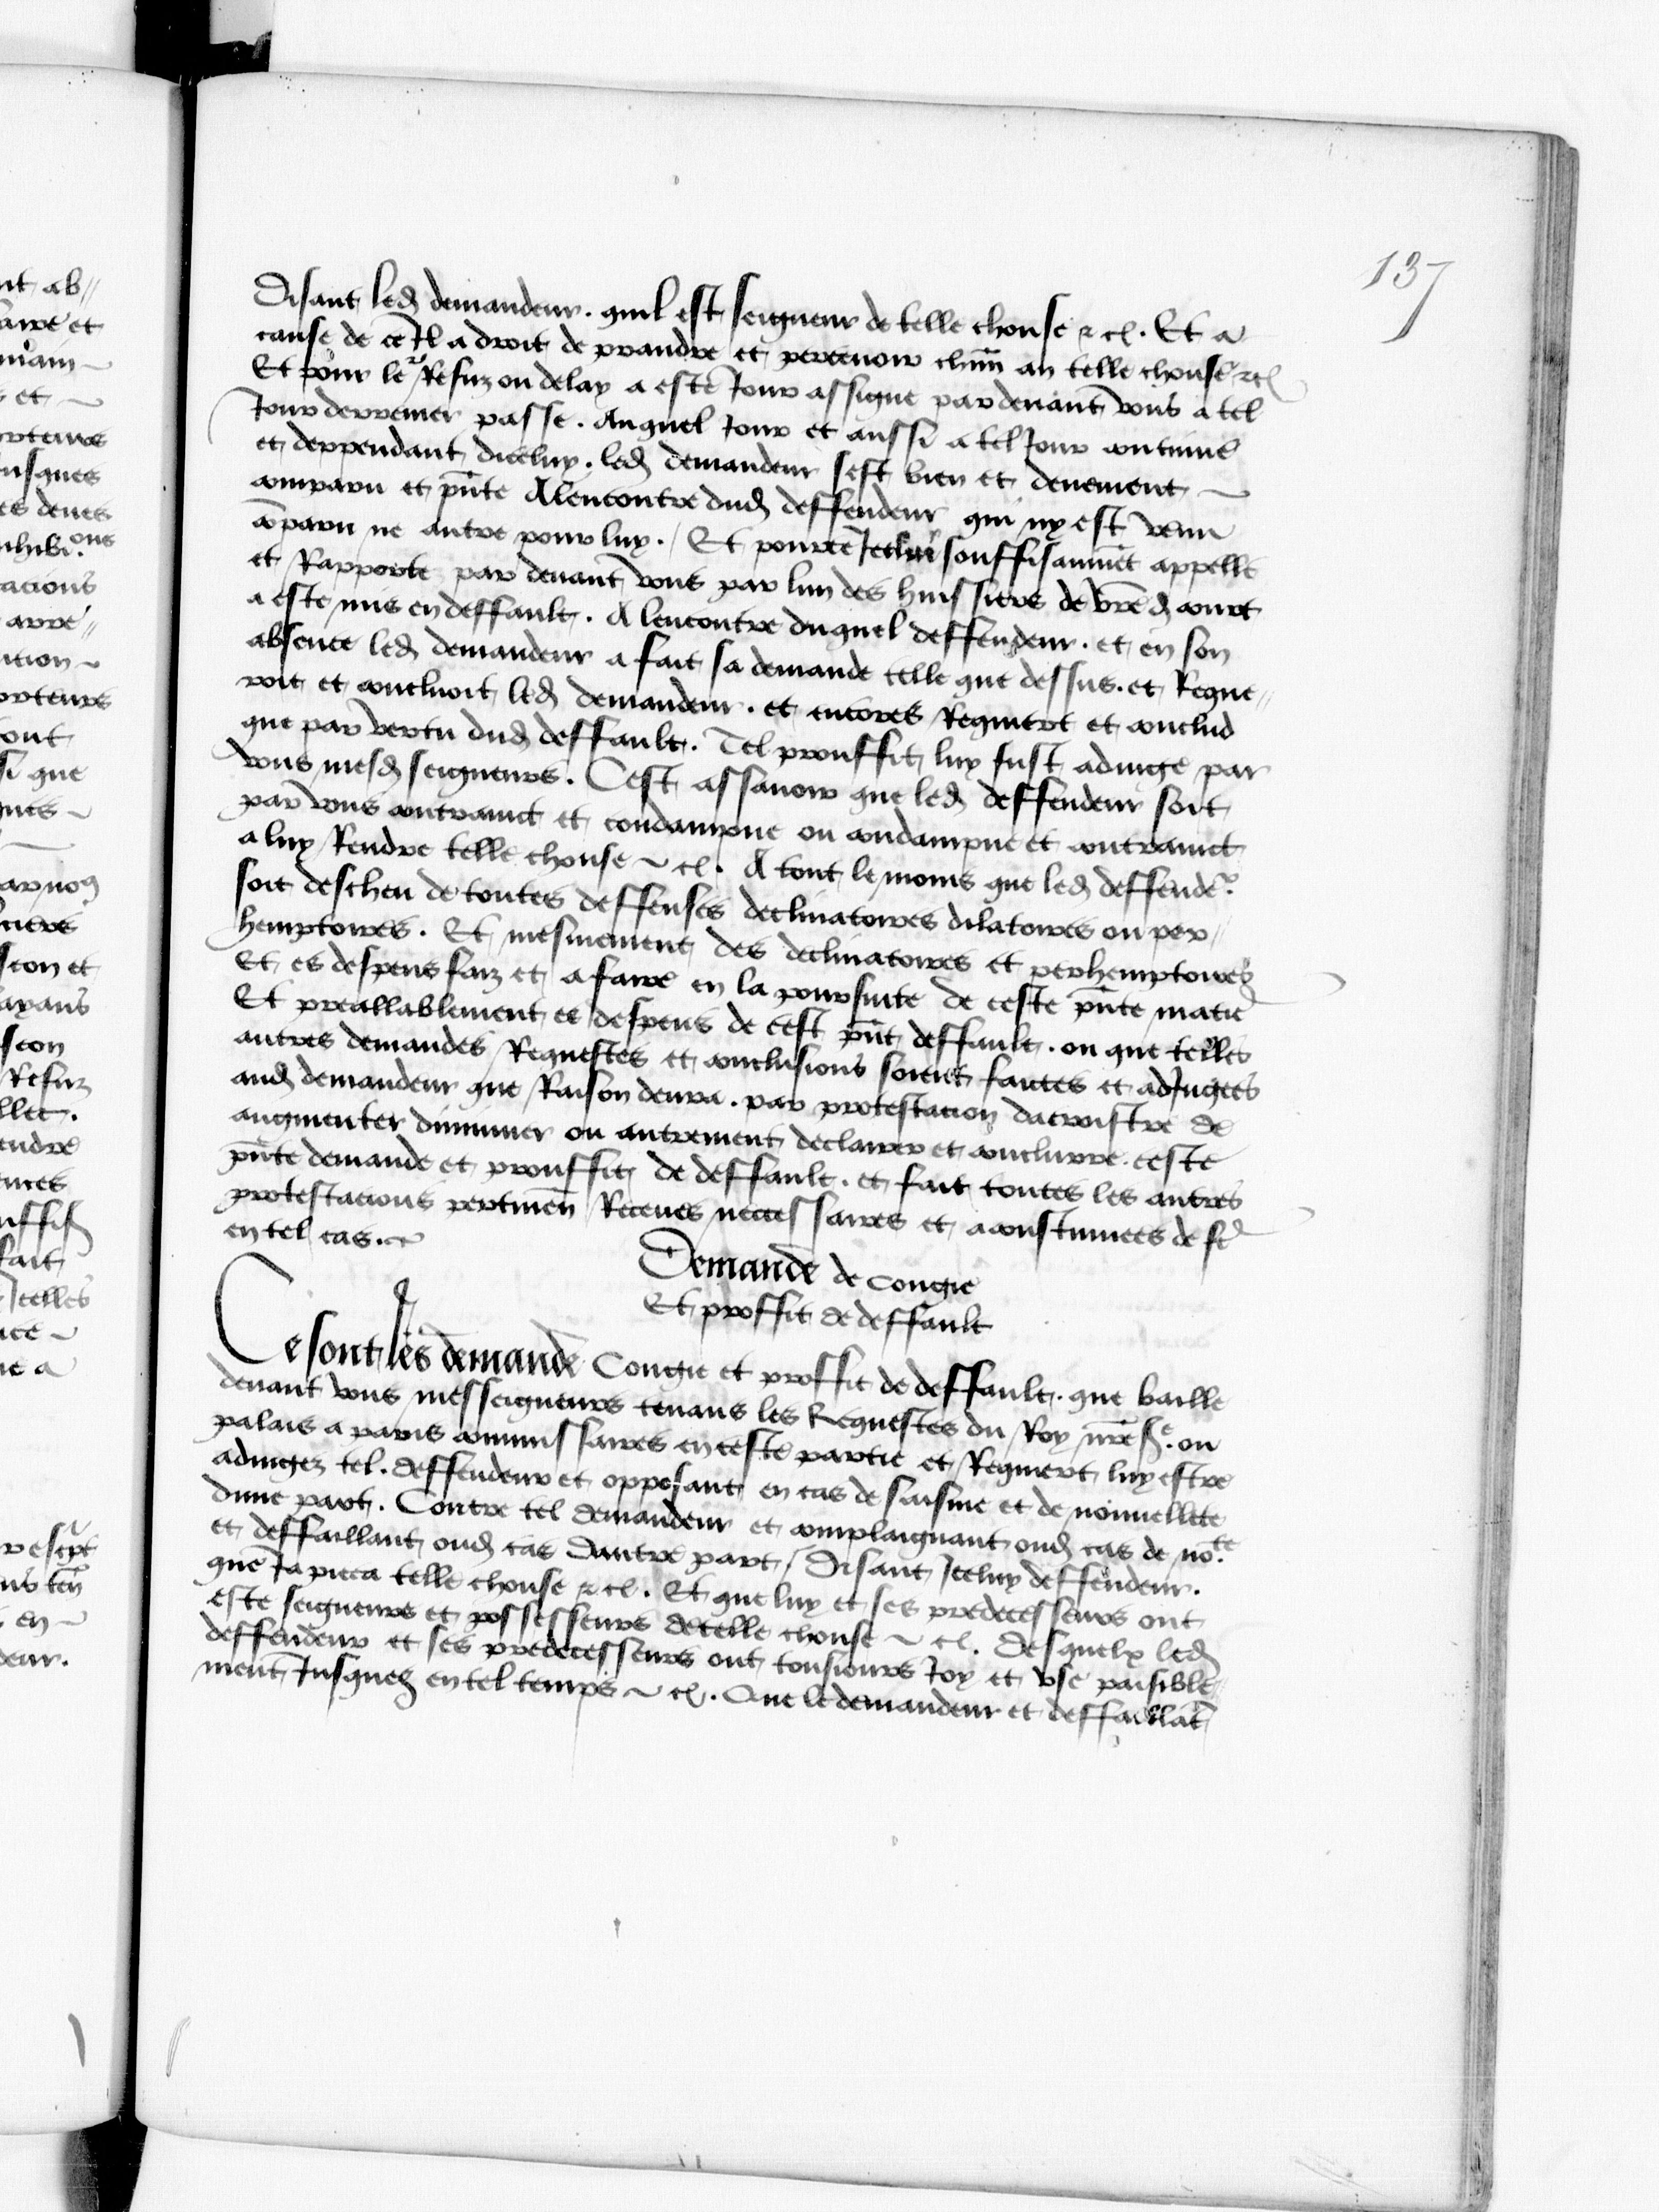 137
Disant led demandeur. quil est seigneur de telle chouse & c. Et a
cause de ce Il a droit de prandre et percevoir chun an telle chouse &c
Et pour le Refuz ou delay a este Jour assigne pardevant vous a tel
Jour derrenier passe. Auquel Jour et aussi a tel Jour continue
et deppendant diceluy. led demandeur sest bien et deuement
comparu et pnte A lencontre dud deffendeur qui ny est venu
comparu ne autre pour luy. / Et pource Icelui souffisanmet appelle
et Rapporte par devant vous par lun des huissiers de vre d court
a este mis en deffault. A lencontre duquel deffendeur. et en son
absence led demandeur a fait sa demande telle que dessus. et Reque//
roit et concluoit led demandeur. et encores Requiert et conclud
que par vertu dud deffault. Tel prouffit luy fust adiuge par
vous mesd seigneurs. Cest assavoir que led deffendeur soit
par vous contraint et condampne ou condampne et contraint
a luy Rendre telle chouse ~ c. A tout le moins que led deffende.r
soit descheu de toutes deffenses declinatoires dilatoires ou per//
hemptoires. Et mesmement des declinatoires et perhemptoires
Et es despens faiz et a faire en la poursuite de ceste pnte matie
Et preallablement es despens de cest pnt deffault. ou que telles
autres demandes Requestes et conclusions soient faictes et adJugees
aud demandeur que Raison devra. par protestacion dacroistre de
augmenter diminuer ou autrement declairer et conclurre. ceste
pnte demande et prouffit de deffault. et fait toutes les autres
protestacions pertinen Receues neccessaires et acoustumees de fe
en tel cas.
Demande de congie
Et proffit de deffault
Ce sont les demande Congie et proffit de deffault. que baille
devant vous messeigneurs tenans les Requestes du Roy nre s.e ou
palais a paris commissaires en ceste partie et Requiert luy estre
adiugez tel. deffendeur et opposant en cas de saisine et de nouvellete
dune part. Contre tel demandeur et complaignant oud cas de no.te
et deffaillant oud cas dautre part / Disant Iceluy deffendeur.
que Ja pieca telle chouse & c. Et que luy et ses predecesseurs ont
este seigneurs et possesseurs de telle chouse ~ c. desquelx led
deffendeur et ses predecesseurs ont tousiours Joy et use paisible
ment Jusques en tel temps ~ c. Que le demandeur et deffaillat